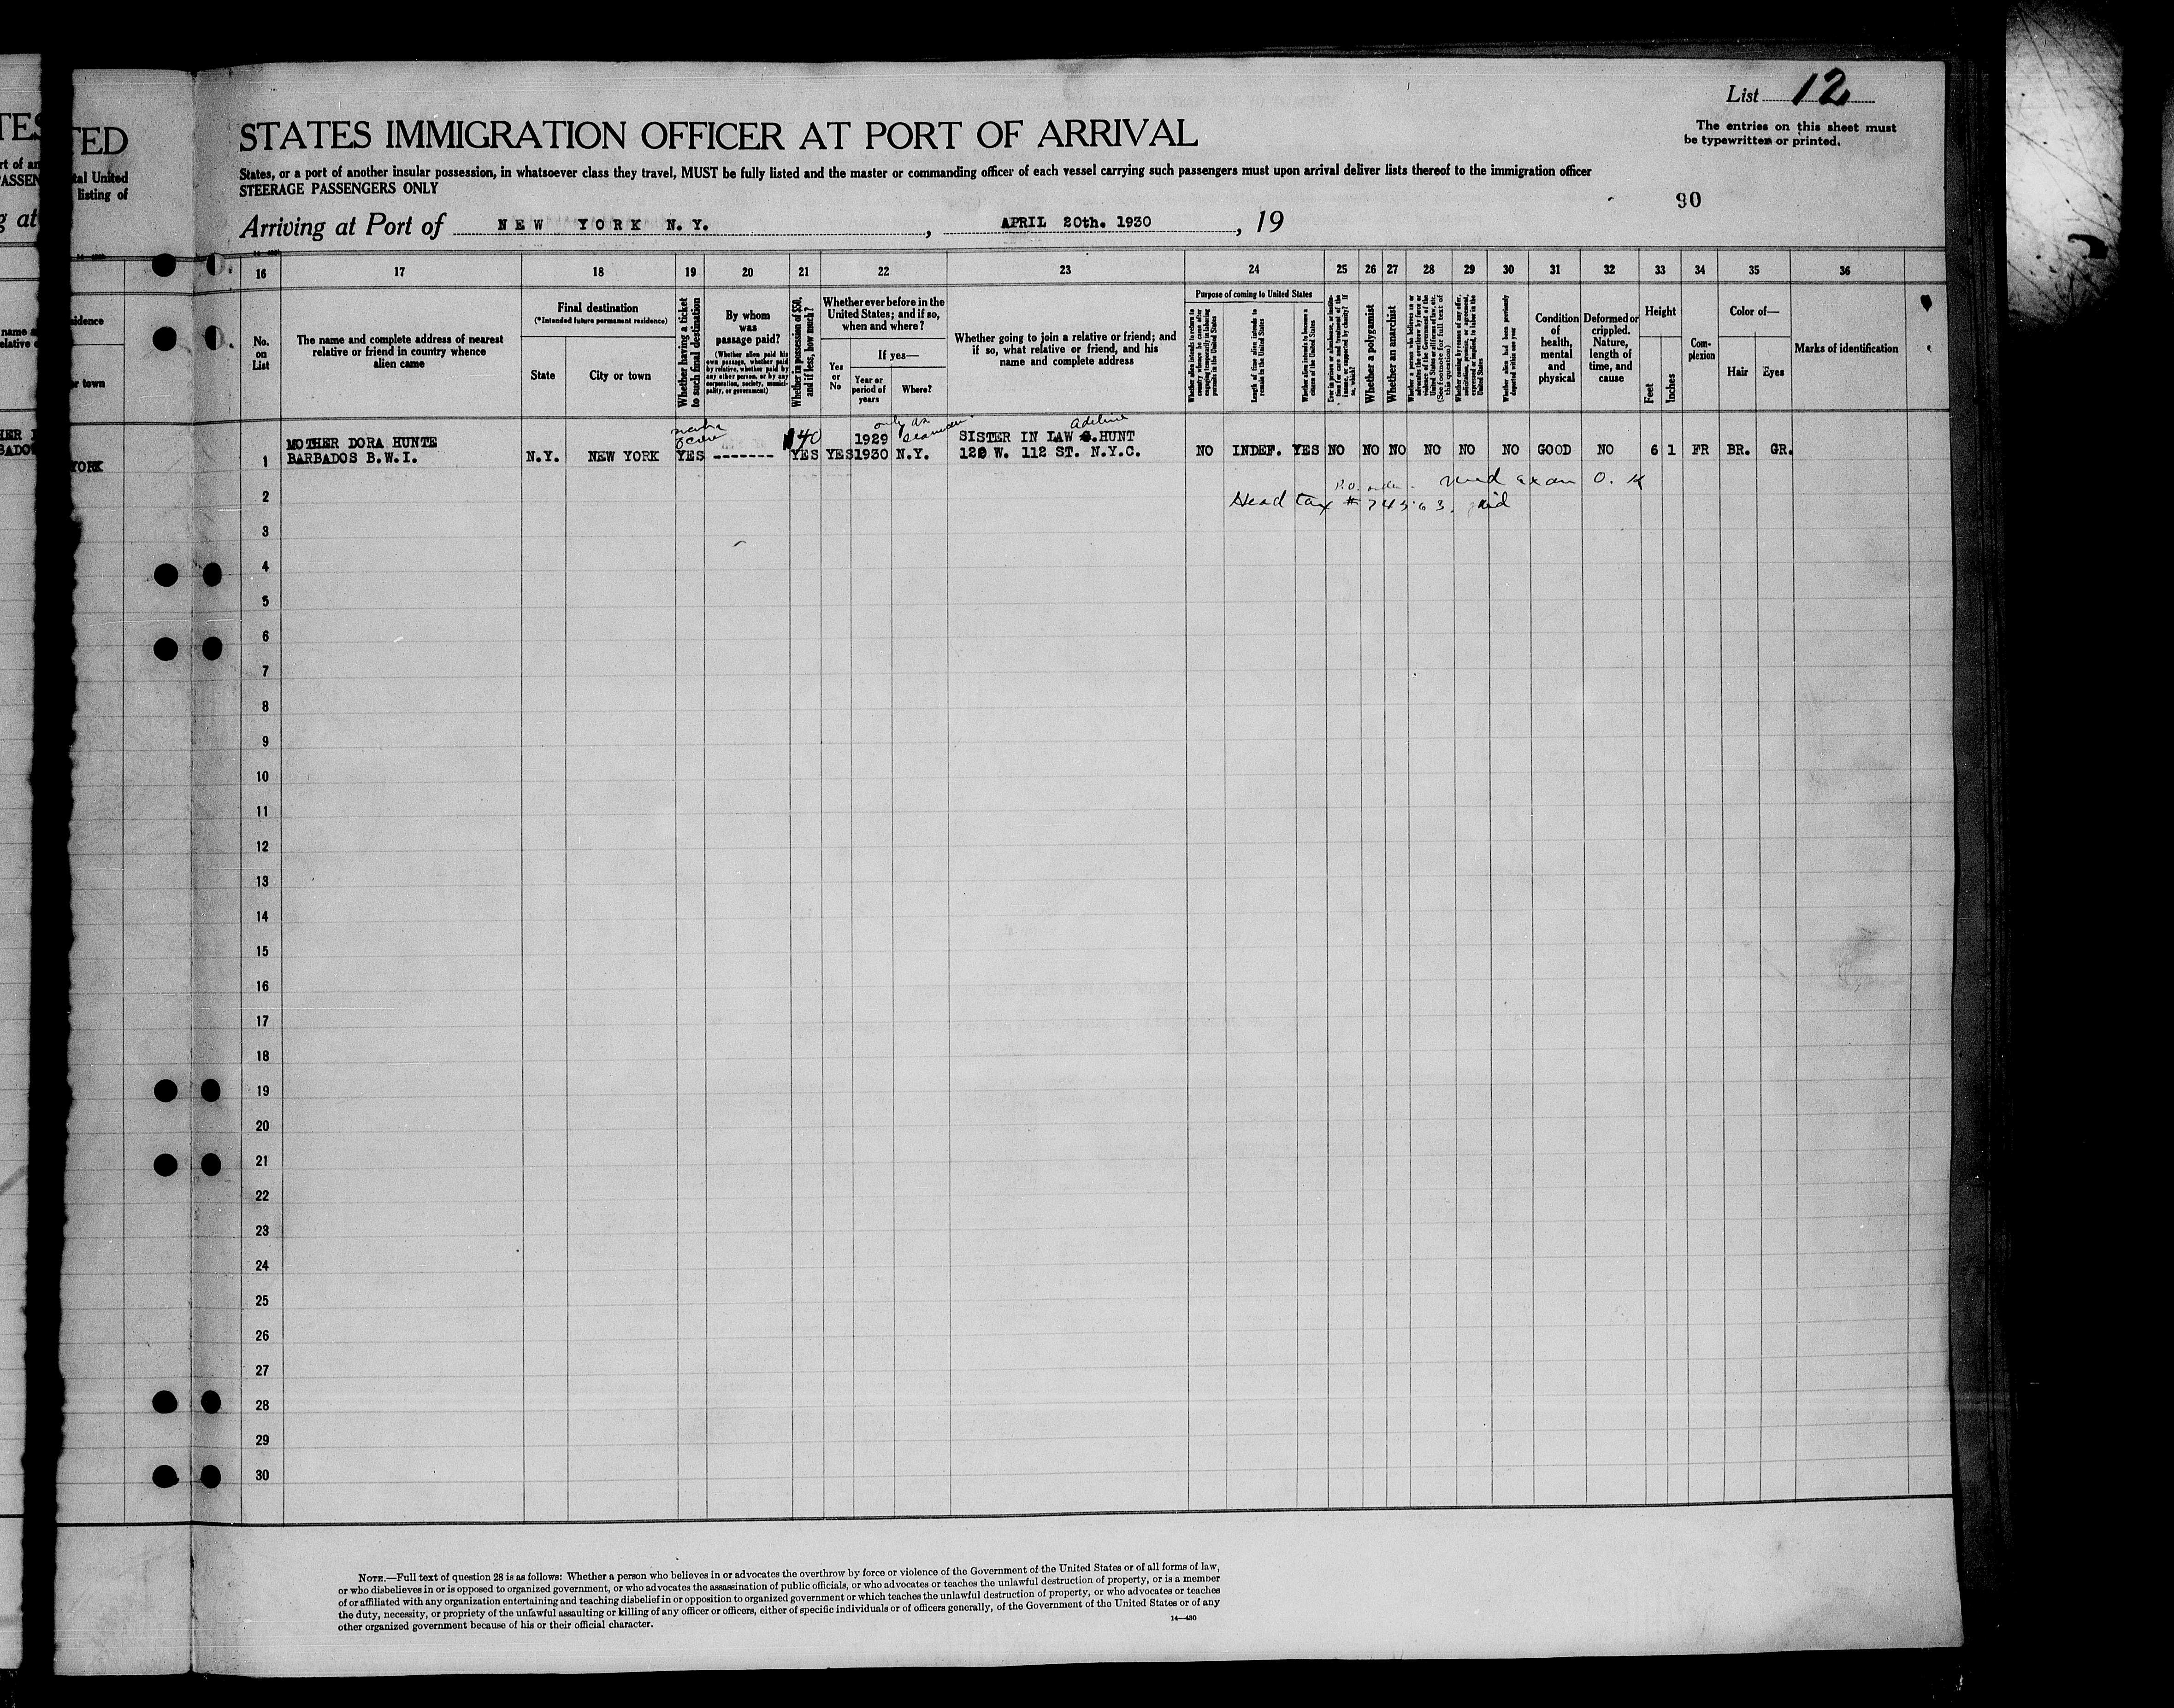 List 12
The entries on this sheet must
be typewritten or printed.
STATES IMMIGRATION OFFICER AT PORT OF ARRIVAL
States, or a port of another insular possession, in whatsoever class they travel, MUST be fully listed and the master or commanding officer of each vessel carrying such passengers must upon arrival deliver lists thereof to the immigration officer
STEERAGE PASSENGERS ONLY
90
Arriving at Port of NEW YORK N.Y., APRIL 20th. 1930, 19
TED
tal United
listing of
16 17 18 19 20 21 22 23 24 25 26 27 28 29 30 31 32 33 34 35 36
No. on List
The name and complete address of nearest
relative or friend in country whence
alien came
Final destination
(*Intended future permanent residence)
State
City or town
Whether having a ticket
to such final destination
By whom
was
passage paid?
(Whether alien paid his
own passage, whether paid
by relative, whether paid by
any other person, or by any
corporation, society, munici-
pality, or government)
Whether in possession of $50,
and if less, how much?
Whether ever before in the
United States; and if so,
when and where?
Yes
or
No
If yes—
Year or
period of
years
Where?
Whether going to join a relative or friend; and
if so, what relative or friend, and his
name and complete address
Purpose of coming to United States
Whether alien intends to return to
country whence he came after
engaging temporarily in laboring
pursuits in the United States
Length of time alien intends to
remain in the United States
Whether alien intends to become a
citizen of the United States
Whether a polygamist
Whether an anarchist
(See footnote for full text of
this question)
Whether alien had been previously
deported within one year
Condition
of
health,
mental
and
physical
Deformed or
crippled.
Nature,
length of
time, and
cause
Height
Feet
Inches
Com-
plexion
Color of—
Hair
Eyes
Marks of identification
only as
seaman
Adeline
MOTHER DORA HUNTE $40 1929 SISTER IN LAW HUNT
1 BARBADOS B.W.I. N.Y. NEW YORK YES ------- YES YES 1930 N.Y. 120 W. 112 ST. N.Y.C. NO INDEF. YES NO NO NO NO NO NO GOOD NO 6 1 FR BR. GR.
YORK
med exam O.K
2 Head tax # 74563. paid
3
4
5
6
7
8
9
10
11
12
13
14
15
16
17
18
19
20
21
22
23
24
25
26
27
28
29
30
NOTE.—Full text of question 28 is as follows: Whether a person who believes in or advocates the overthrow by force or violence of the Government of the United States or of all forms of law,
or who disbelieves in or is opposed to organized government, or who advocates the assassination of public officials, or who advocates or teaches the unlawful destruction of property, or is a member
of or affiliated with any organization entertaining and teaching disbelief in or opposition to organized government or which teaches the unlawful destruction of property, or who advocates or teaches
the duty, necessity, or propriety of the unlawful assaulting or killing of any officer or officers, either of specific individuals or of officers generally, of the Government of the United States or of any
other organized government because of his or their official character.
14—430